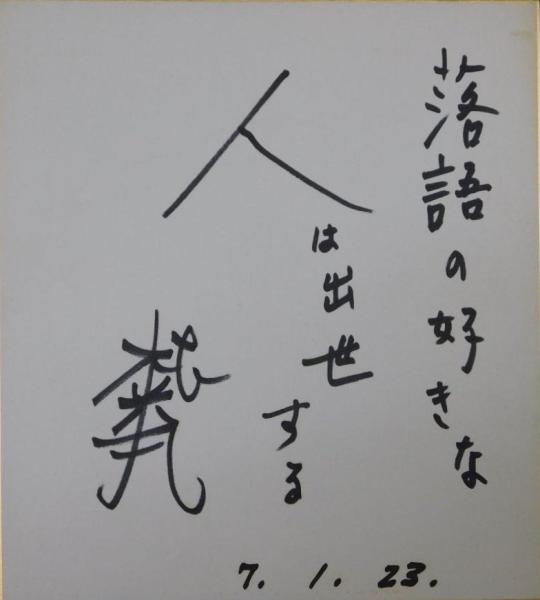 落語の好きな
人
は出世
する
7. 1. 23.